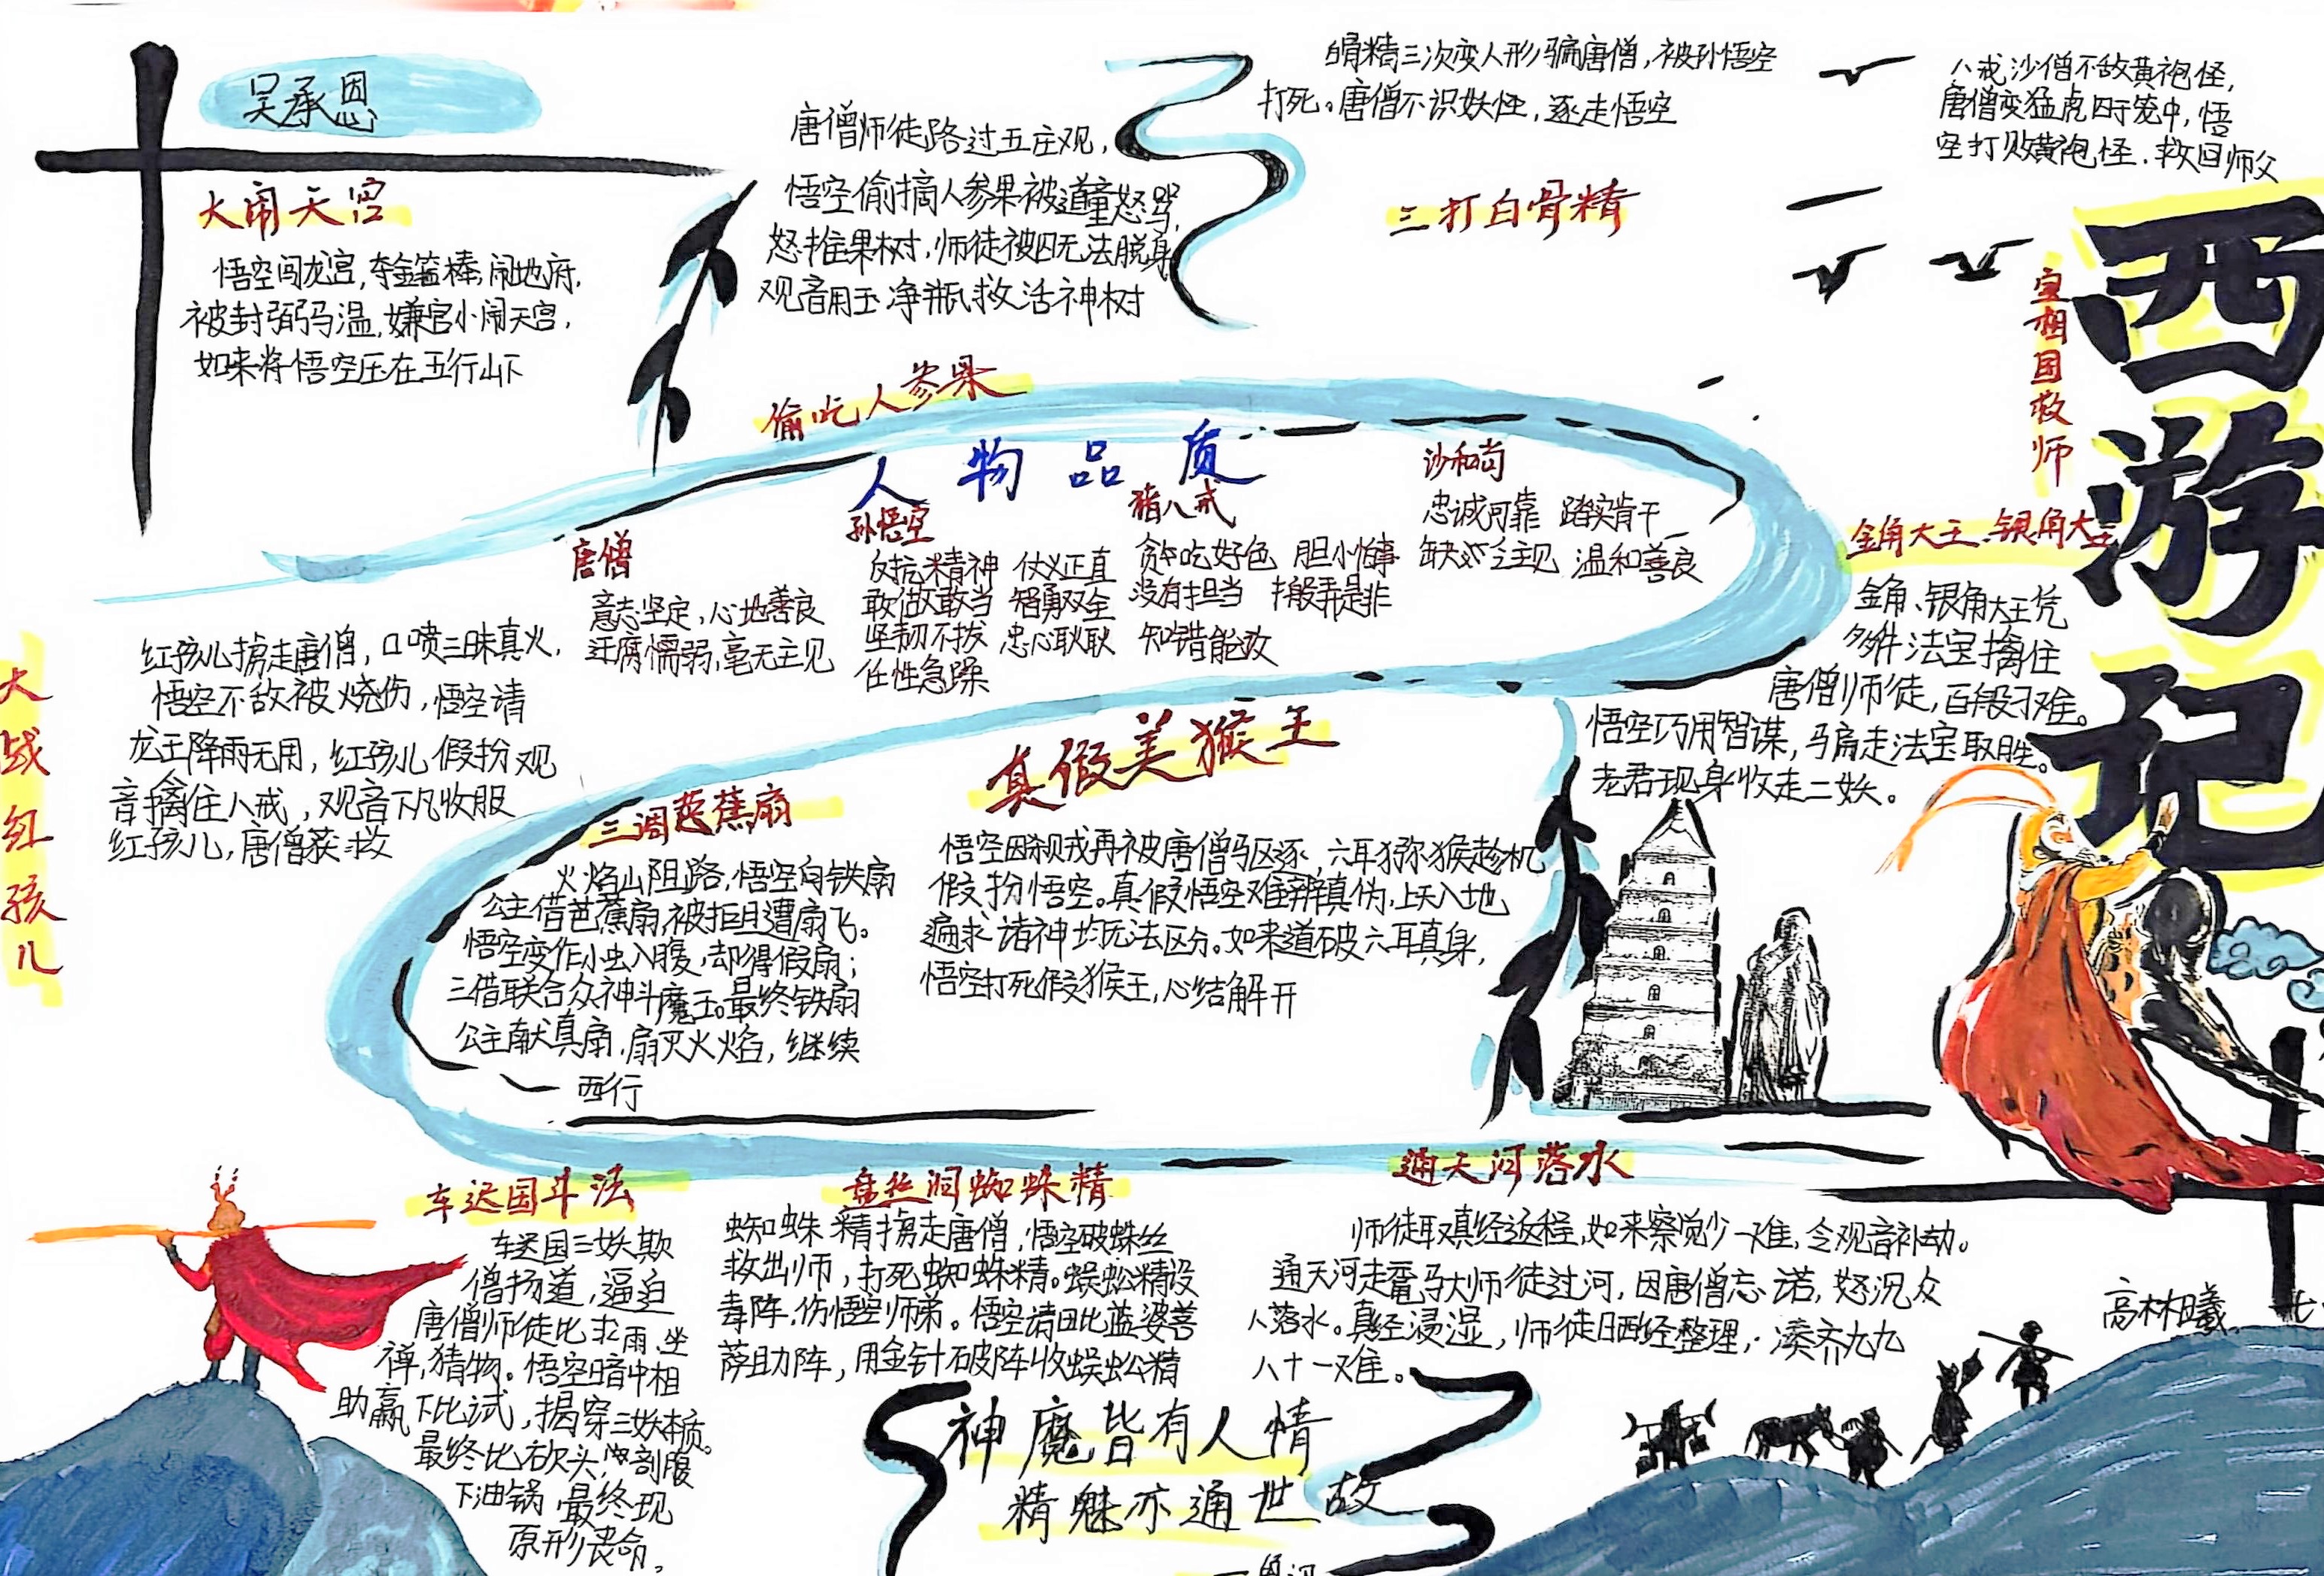 西游记
吴承恩
大闹天宫
悟空闯龙宫,夺金箍棒,闹地府,
被封弼马温,嫌官小闹天宫,
如来将悟空压在五行山下
唐僧师徒路过五庄观,
悟空偷摘人参果被道童怒骂,
怒推果树,师徒被囚无法脱身
观音用玉净瓶救活神树
偷吃人参果
白骨精三次变人形骗唐僧,被孙悟空
打死。唐僧不识妖怪,逐走悟空
三打白骨精
八戒沙僧不敌黄袍怪,
唐僧变猛虎囚于笼中,悟
空打败黄袍怪,救回师父
宝相国救师
人物品质
唐僧
意志坚定,心地善良
迂腐懦弱,毫无主见
孙悟空
反抗精神 仗义正直
敢做敢当 智勇双全
坚韧不拔 忠心耿耿
任性急躁
猪八戒
贪吃好色 胆小怕事
没有担当 搬弄是非
知错能改
沙和尚
忠诚可靠 踏实肯干
缺少主见 温和善良
金角大王、银角大王
金角、银角大王凭
多件法宝擒住
唐僧师徒,百般刁难。
悟空巧用智谋,骗走法宝取胜。
老君现身收走二妖。
大战红孩儿
红孩儿掳走唐僧,口喷三昧真火,
悟空不敌被烧伤,悟空请
龙王降雨无用,红孩儿假扮观
音擒住八戒,观音下凡收服
红孩儿,唐僧获救
三调芭蕉扇
火焰山阻路,悟空向铁扇
公主借芭蕉扇,被拒且遭扇飞。
悟空变作小虫入腹,却得假扇;
三借联合众神斗魔王。最终铁扇
公主献真扇,扇灭火焰,继续
西行
真假美猴王
悟空因杀戒再被唐僧驱逐,六耳猕猴趁机
假扮悟空。真假悟空难辨真伪,上天入地
遍求诸神均无法区分。如来道破六耳真身,
悟空打死假猴王,心结解开
车迟国斗法
车迟国三妖欺
僧扬道,逼迫
唐僧师徒比求雨、坐
禅,猜物。悟空暗中相
助赢下比试,揭穿三妖本质。
最终比砍头,剖腹
下油锅 最终现
原形丧命。
盘丝洞蜘蛛精
蜘蛛精掳走唐僧,悟空破蛛丝
救出师,打死蜘蛛精。蜈蚣精设
毒阵,伤悟空师弟。悟空请毗蓝婆菩
萨助阵,用金针破阵收蜈蚣精
通天河落水
师徒取真经返程,如来察觉少一难,令观音补劫。
通天河老鼋驮师徒过河,因唐僧忘诺,怒沉众
人落水。真经浸湿,师徒晒经整理,凑齐九九
八十一难。
神魔皆有人情
精魅亦通世故
一鲁迅
高林曦